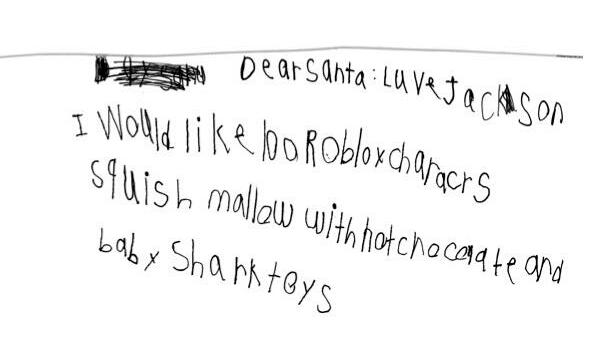 Dear Santa: Luve Jackson
I Would like bo Roblox characrs
squish mallow with hot chocolate and
baby Shark toys